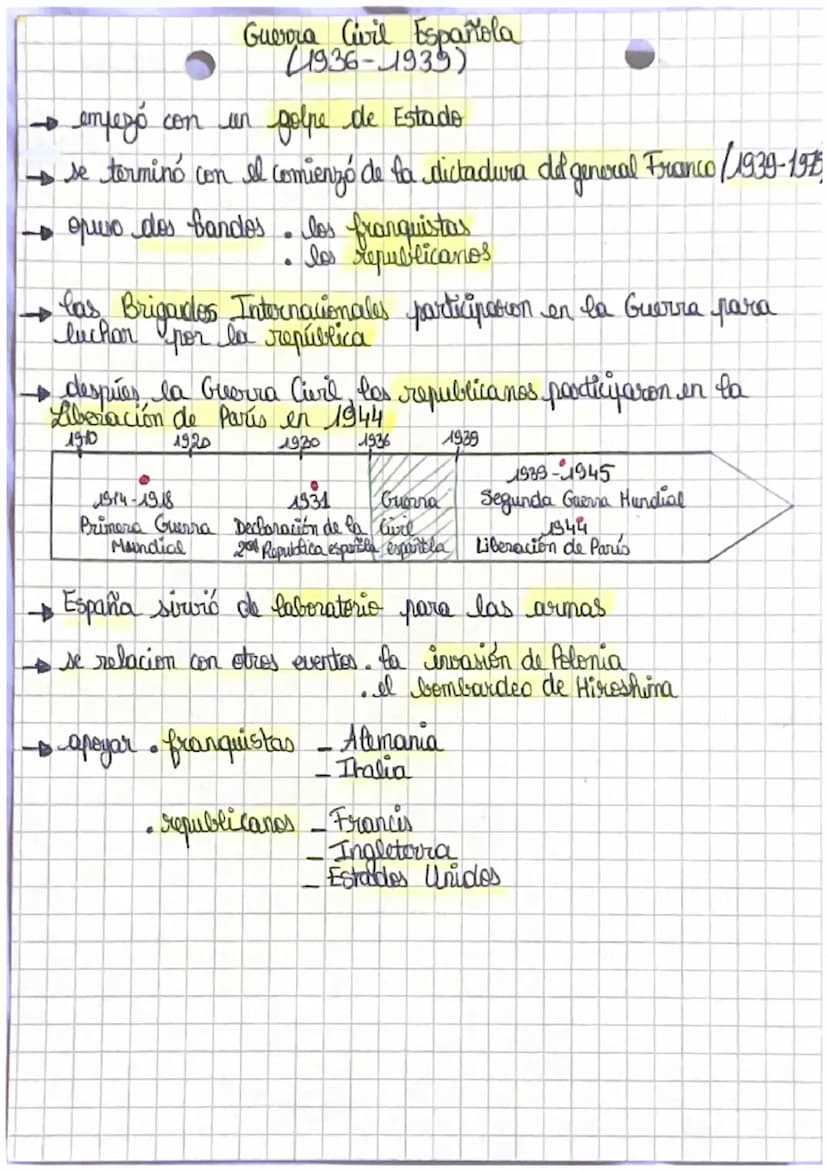 Guerra Civil Española
(1936-1939)
→ empezó con un golpe de Estado
→ se terminó con el comienzó de la dictadura del general Franco (1939-1975
→ opuso dos bandos • los franquistas
• los republicanos
→ las Brigardos Internacionales participaron en la Guerra para
luchar por la república
→ despúes la Guerra Civil, los republicanos participaron en la
Liberación de París en 1944
1910 1920 1930 1936 1939
1914-1918 1931 Guerra 1939-1945
Primera Guerra Declaración de la Civil Segunda Guerra Mundial
Mundial 2nd Republica española española 1944
Liberación de París
→ España sirvió de laboratorio para las armas
→ se relacion con otros eventos • la invasión de Polonia
• el bombardeo de Hiroshima
→ apoyar • franquistas - Alemania
- Italia
• republicanos - Francis
- Ingleterra
- Estados Unidos